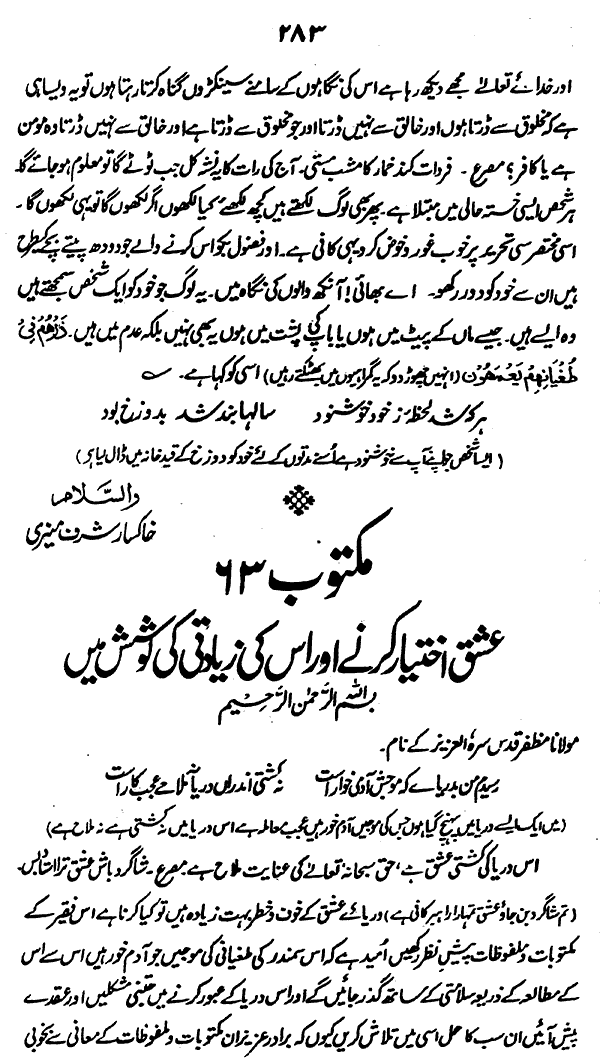 ۲۸۳
اور خدائے تعالےٰ مجھے دیکھ رہا ہے اس کی نگاہوں کے سامنے سینکڑوں گناہ کرتا رہتا ہوں تو یہ ویسا ہی
ہے کہ مخلوق سے ڈرتا ہوں اور خالق سے نہیں ڈرتا اور جو مخلوق سے ڈرتا ہے اور خالق سے نہیں ڈرتا وہ مومن
ہے یا کافر؟ مصرع۔ فردات کند خمار کا مشب مستی۔ آج کی رات کا یہ نشہ کل جب ٹوٹے گا تو معلوم ہو جائے گا
ہر شخص ایسی خستہ حالی میں مبتلا ہے۔ پھر بھی لوگ لکھتے ہیں کچھ لکھیے۔ کیا لکھوں اگر لکھوں گا تو یہی لکھوں گا۔
اسی مختصر سی تحریر پر خوب غور و خوض کرو یہی کافی ہے۔ اور فضول بکواس کرنے والے جو دودھ پیتے بچے کی طرح
ہیں ان سے خود کو دور رکھو۔ اے بھائی! آنکھ والوں کی نگاہ میں۔ یہ لوگ جو خود کو ایک شخص سمجھتے ہیں
وہ ایسے ہیں۔ جیسے ماں کے پیٹ میں ہوں یا باپ کی پشت میں ہوں یہ بھی نہیں بلکہ عدم میں ہیں۔ ذَرْهُمْ فِیْ
طُغْیَانِهِمْ یَعْمَهُوْن (انہیں چھوڑ دو کہ یہ گمراہیوں میں بھٹکتے رہیں) اسی کو کہا ہے۔
ہر کہ شد لحظۂ ز خود خوشنود سالہا بند شد بدوزخ بود
(ایسا شخص جو اپنے آپ سے خوشنود ہے اُسنے مدتوں کے لئے خود کو دوزخ کے قید خانہ میں ڈال لیا ہے)
والسَّلام
خاکسار شرف منیری
مکتوب ۶۳
عشق اختیار کرنے اور اس کی زیادتی کی کوشش میں
بسم اللہ الرَّحمٰن الرَّحِیْم
مولانا مظفر قدس سرہٗ العزیز کے نام۔
رسیدم من بدریاے کہ موجش آدمی خوار است نہ کشتی اندراں دریا نہ ملاحے عجب کار است
(میں ایک ایسے دریا میں پہنچ گیا ہوں جس کی موجیں آدم خور ہیں عجب معاملہ ہے اس دریا میں نہ کشتی ہے نہ ملاح ہے)
اس دریا کی کشتی عشق ہے، حق سبحانہ تعالےٰ کی عنایت ملاح ہے مصرع۔ شاگرد باش عشق ترا استاد بس۔
(تم شاگرد بن جاؤ عشق تمہارا راہبر کافی ہے) دریائے عشق کے خوف و خطر بہت زیادہ ہیں تو کیا کرنا ہے اس فقیر کے
مکتوبات و ملفوظات پیش نظر رکھیں اُمید ہے کہ اس سمندر کی طغیانی کی موجیں جو آدم خور ہیں اس سے اس
کے مطالعہ کے ذریعہ سلامتی کے ساتھ گذر جائیں گے اور اس دریا کے عبور کرنے میں جتنی مشکلیں اور عقدے
پیش آئیں ان سب کا حل اسی میں تلاش کریں کیوں کہ برادر عزیز ان مکتوبات و ملفوظات کے معانی سے بخوبی